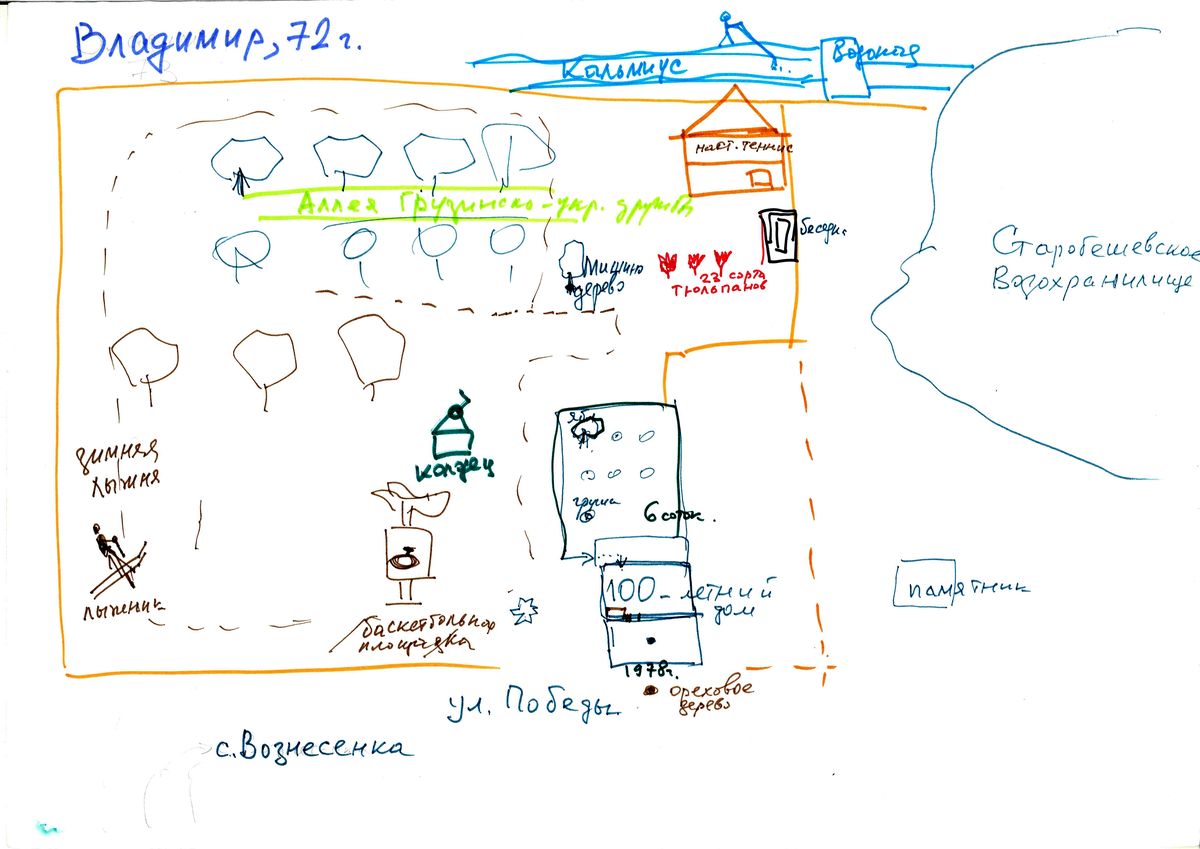 Владимир, 72 г.
Кальмиус
Водокач
наст. теннис
Аллея Грузинско-укр. дружбы
беседка
Мишино
дерево
23 сорта
тюльпанов
Старобешевское
Водохранилище
зимняя
лыжня
колодец
ябл
груша
6 соток.
лыжник
баскетбольная
площадка
100-летний
дом
памятник
1978г.
ореховое
дерево
ул. Победы
с. Вознесенка